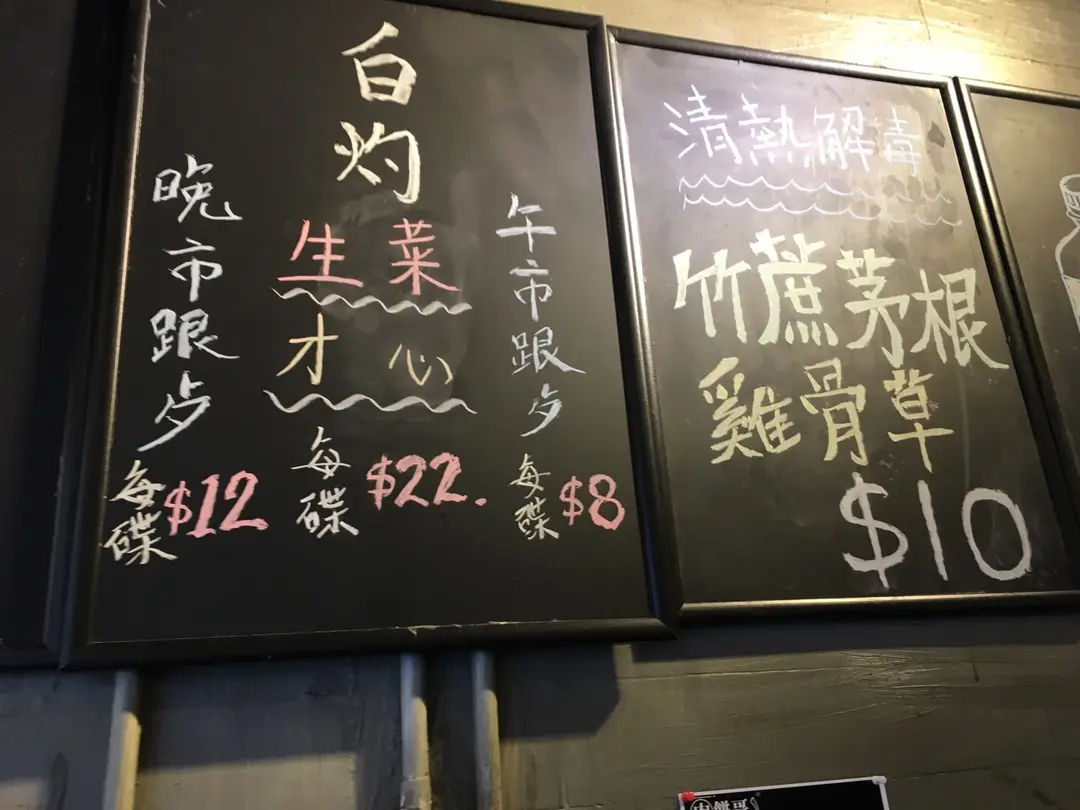 白灼
生菜
才心
每碟 $22.
午市跟歺
每碟 $8
晚市跟歺
每碟 $12
清熱解毒
竹蔗茅根
雞骨草
$10